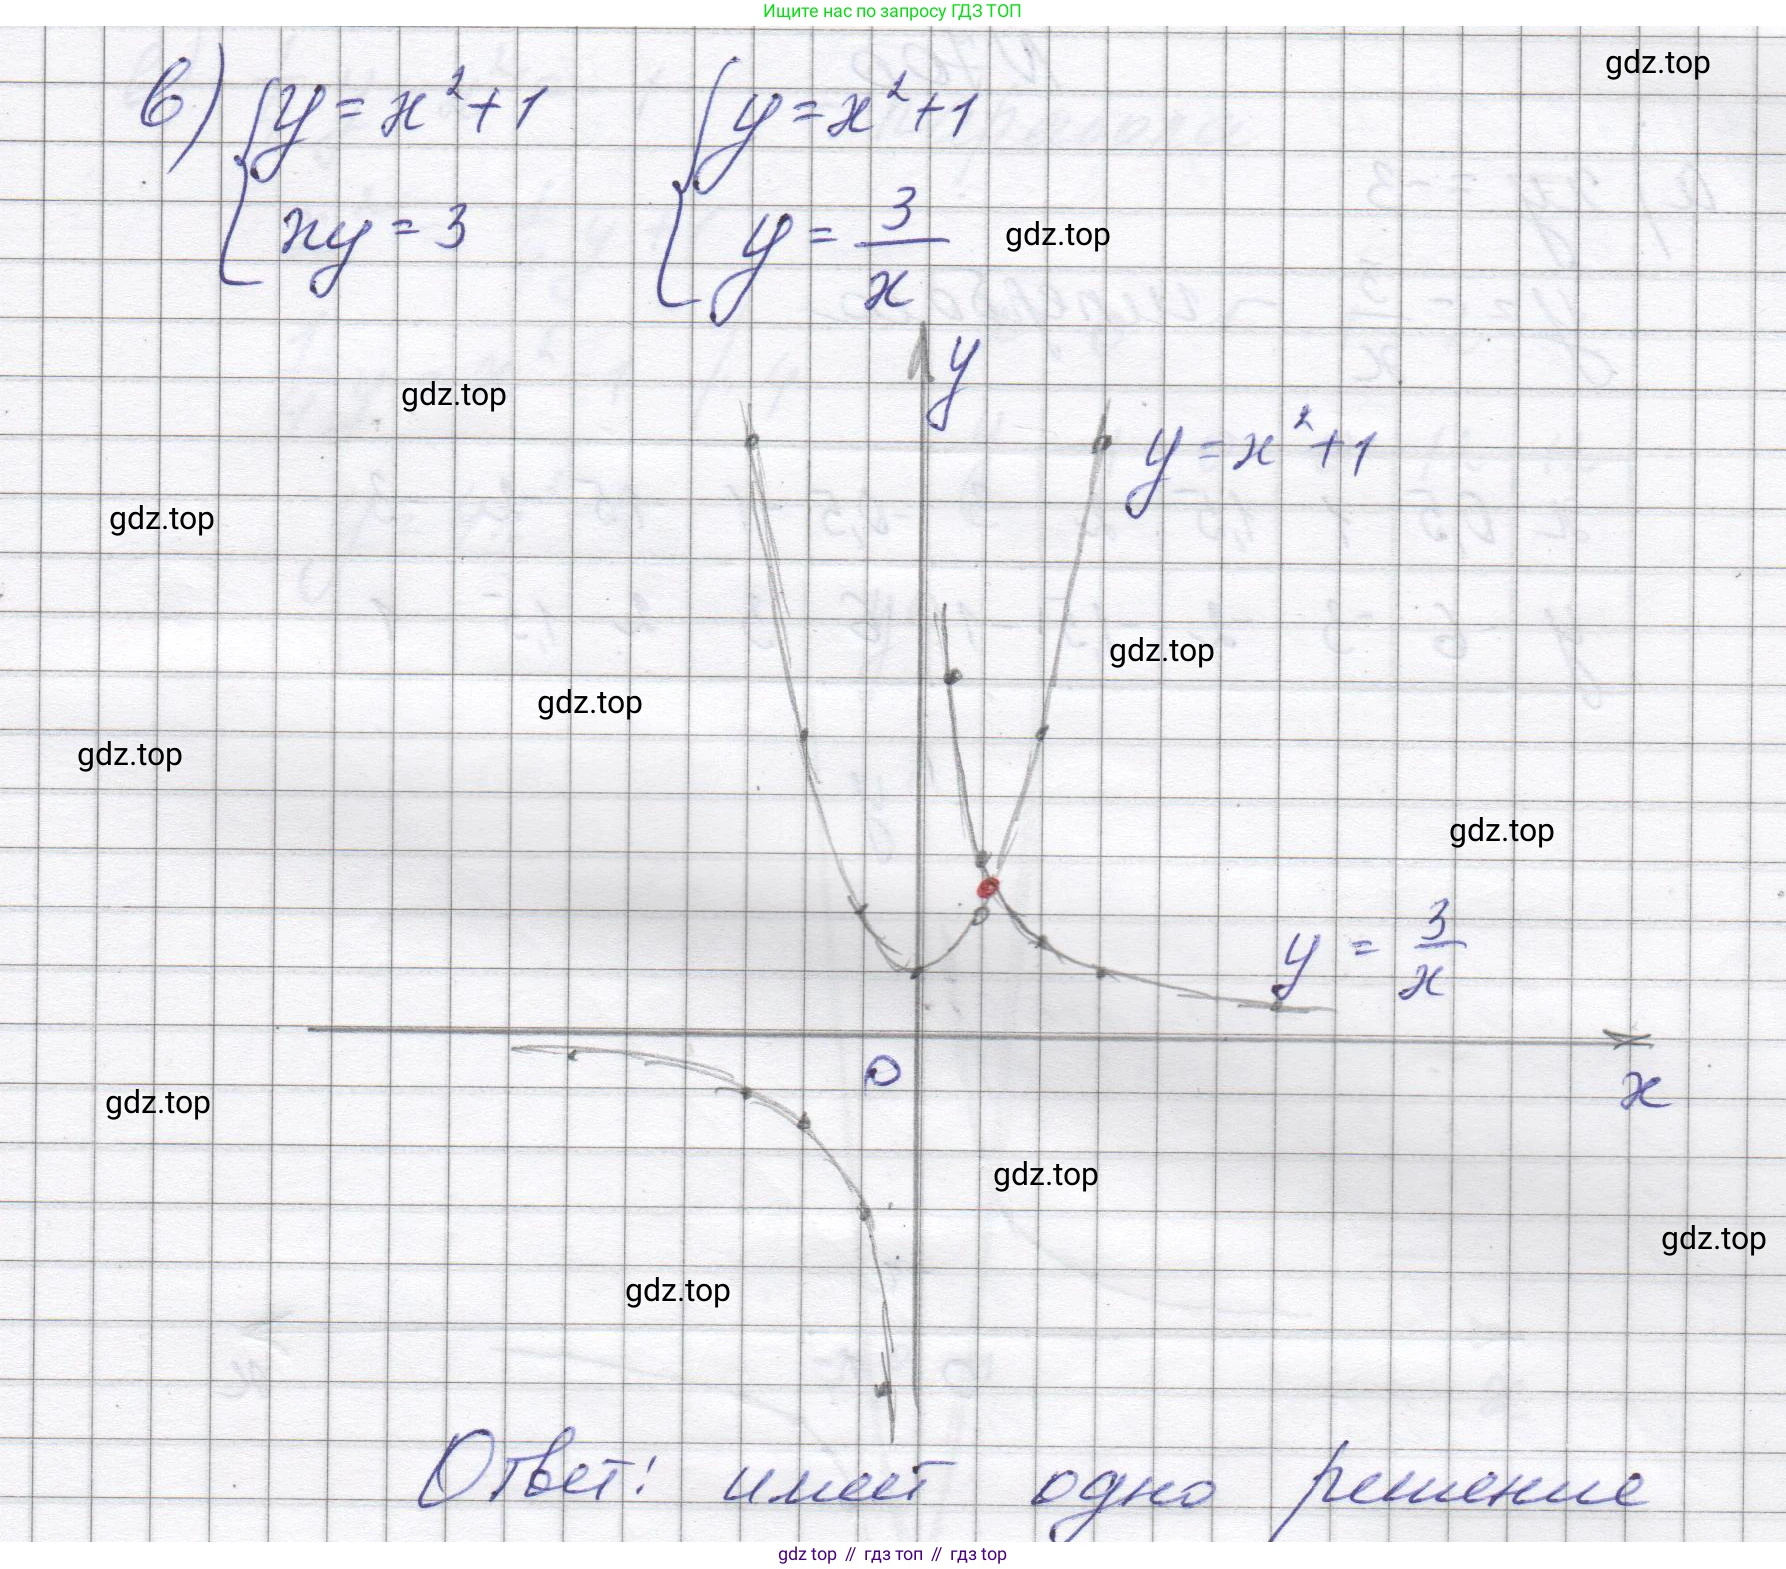 Ищите нас по запросу ГДЗ ТОП
gdz.top
в) { y = x² + 1   { y = x² + 1
xy = 3   y = 3/x
gdz.top
y
gdz.top
y = x² + 1
gdz.top
gdz.top
gdz.top
gdz.top
gdz.top
y = 3/x
0
x
gdz.top
gdz.top
gdz.top
gdz.top
Ответ: имеет одно решение
gdz top // гдз топ // гдз top